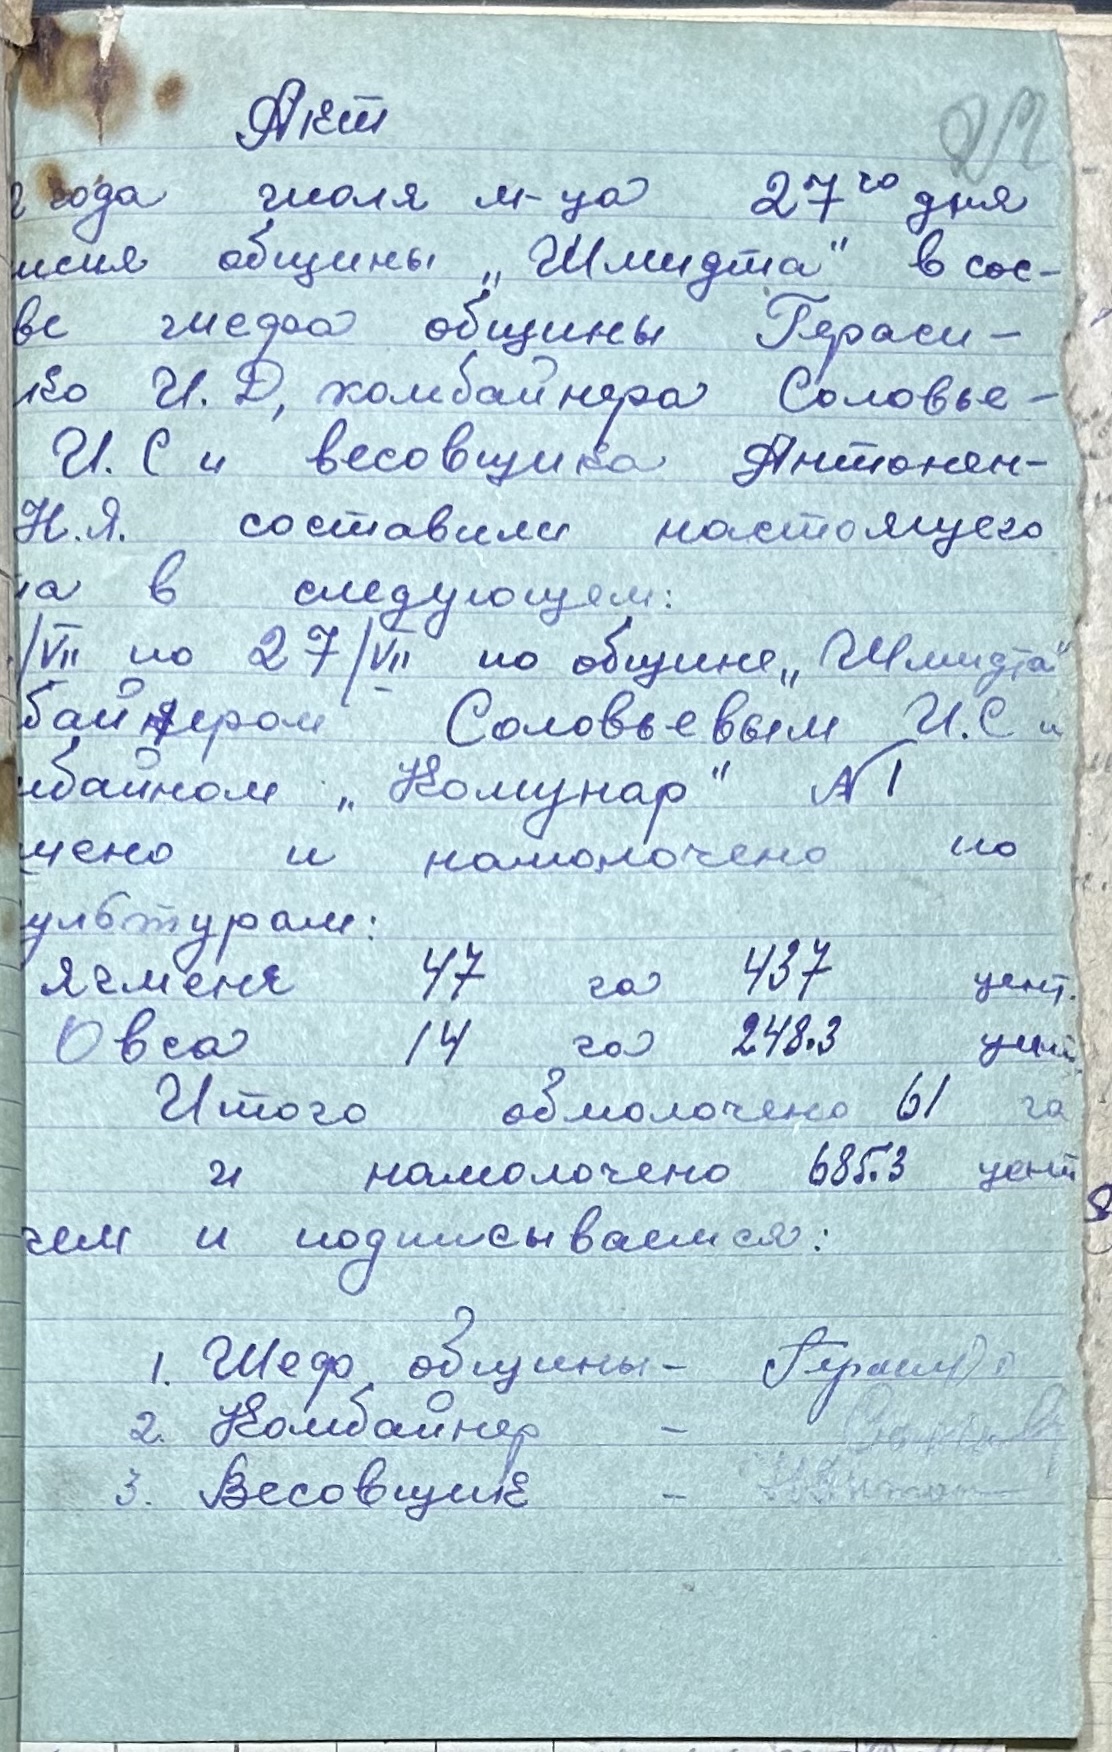 Акт
года июля м-ца 27го дня
исия общины „Шмидта" в сос-
ве шефа общины Гераси-
ко И.Д, комбайнера Соловье-
И.С и весовщика Антонен-
Н.Я. составили настоящего
та в следующем:
/VII по 27/VII по общине „Шмидта"
байнером Соловьевым И.С и
мбайном „Комунар" №1
шено и намолочено по
ультурам:
Ячменя 47 га 437 цент.
Овса 14 га 248.3 цент.
Итого обмолочено 61 га
и намолочено 685.3 цент
чем и подписываемся:
1. Шеф общины -
2. Комбайнер -
3. Весовщик -